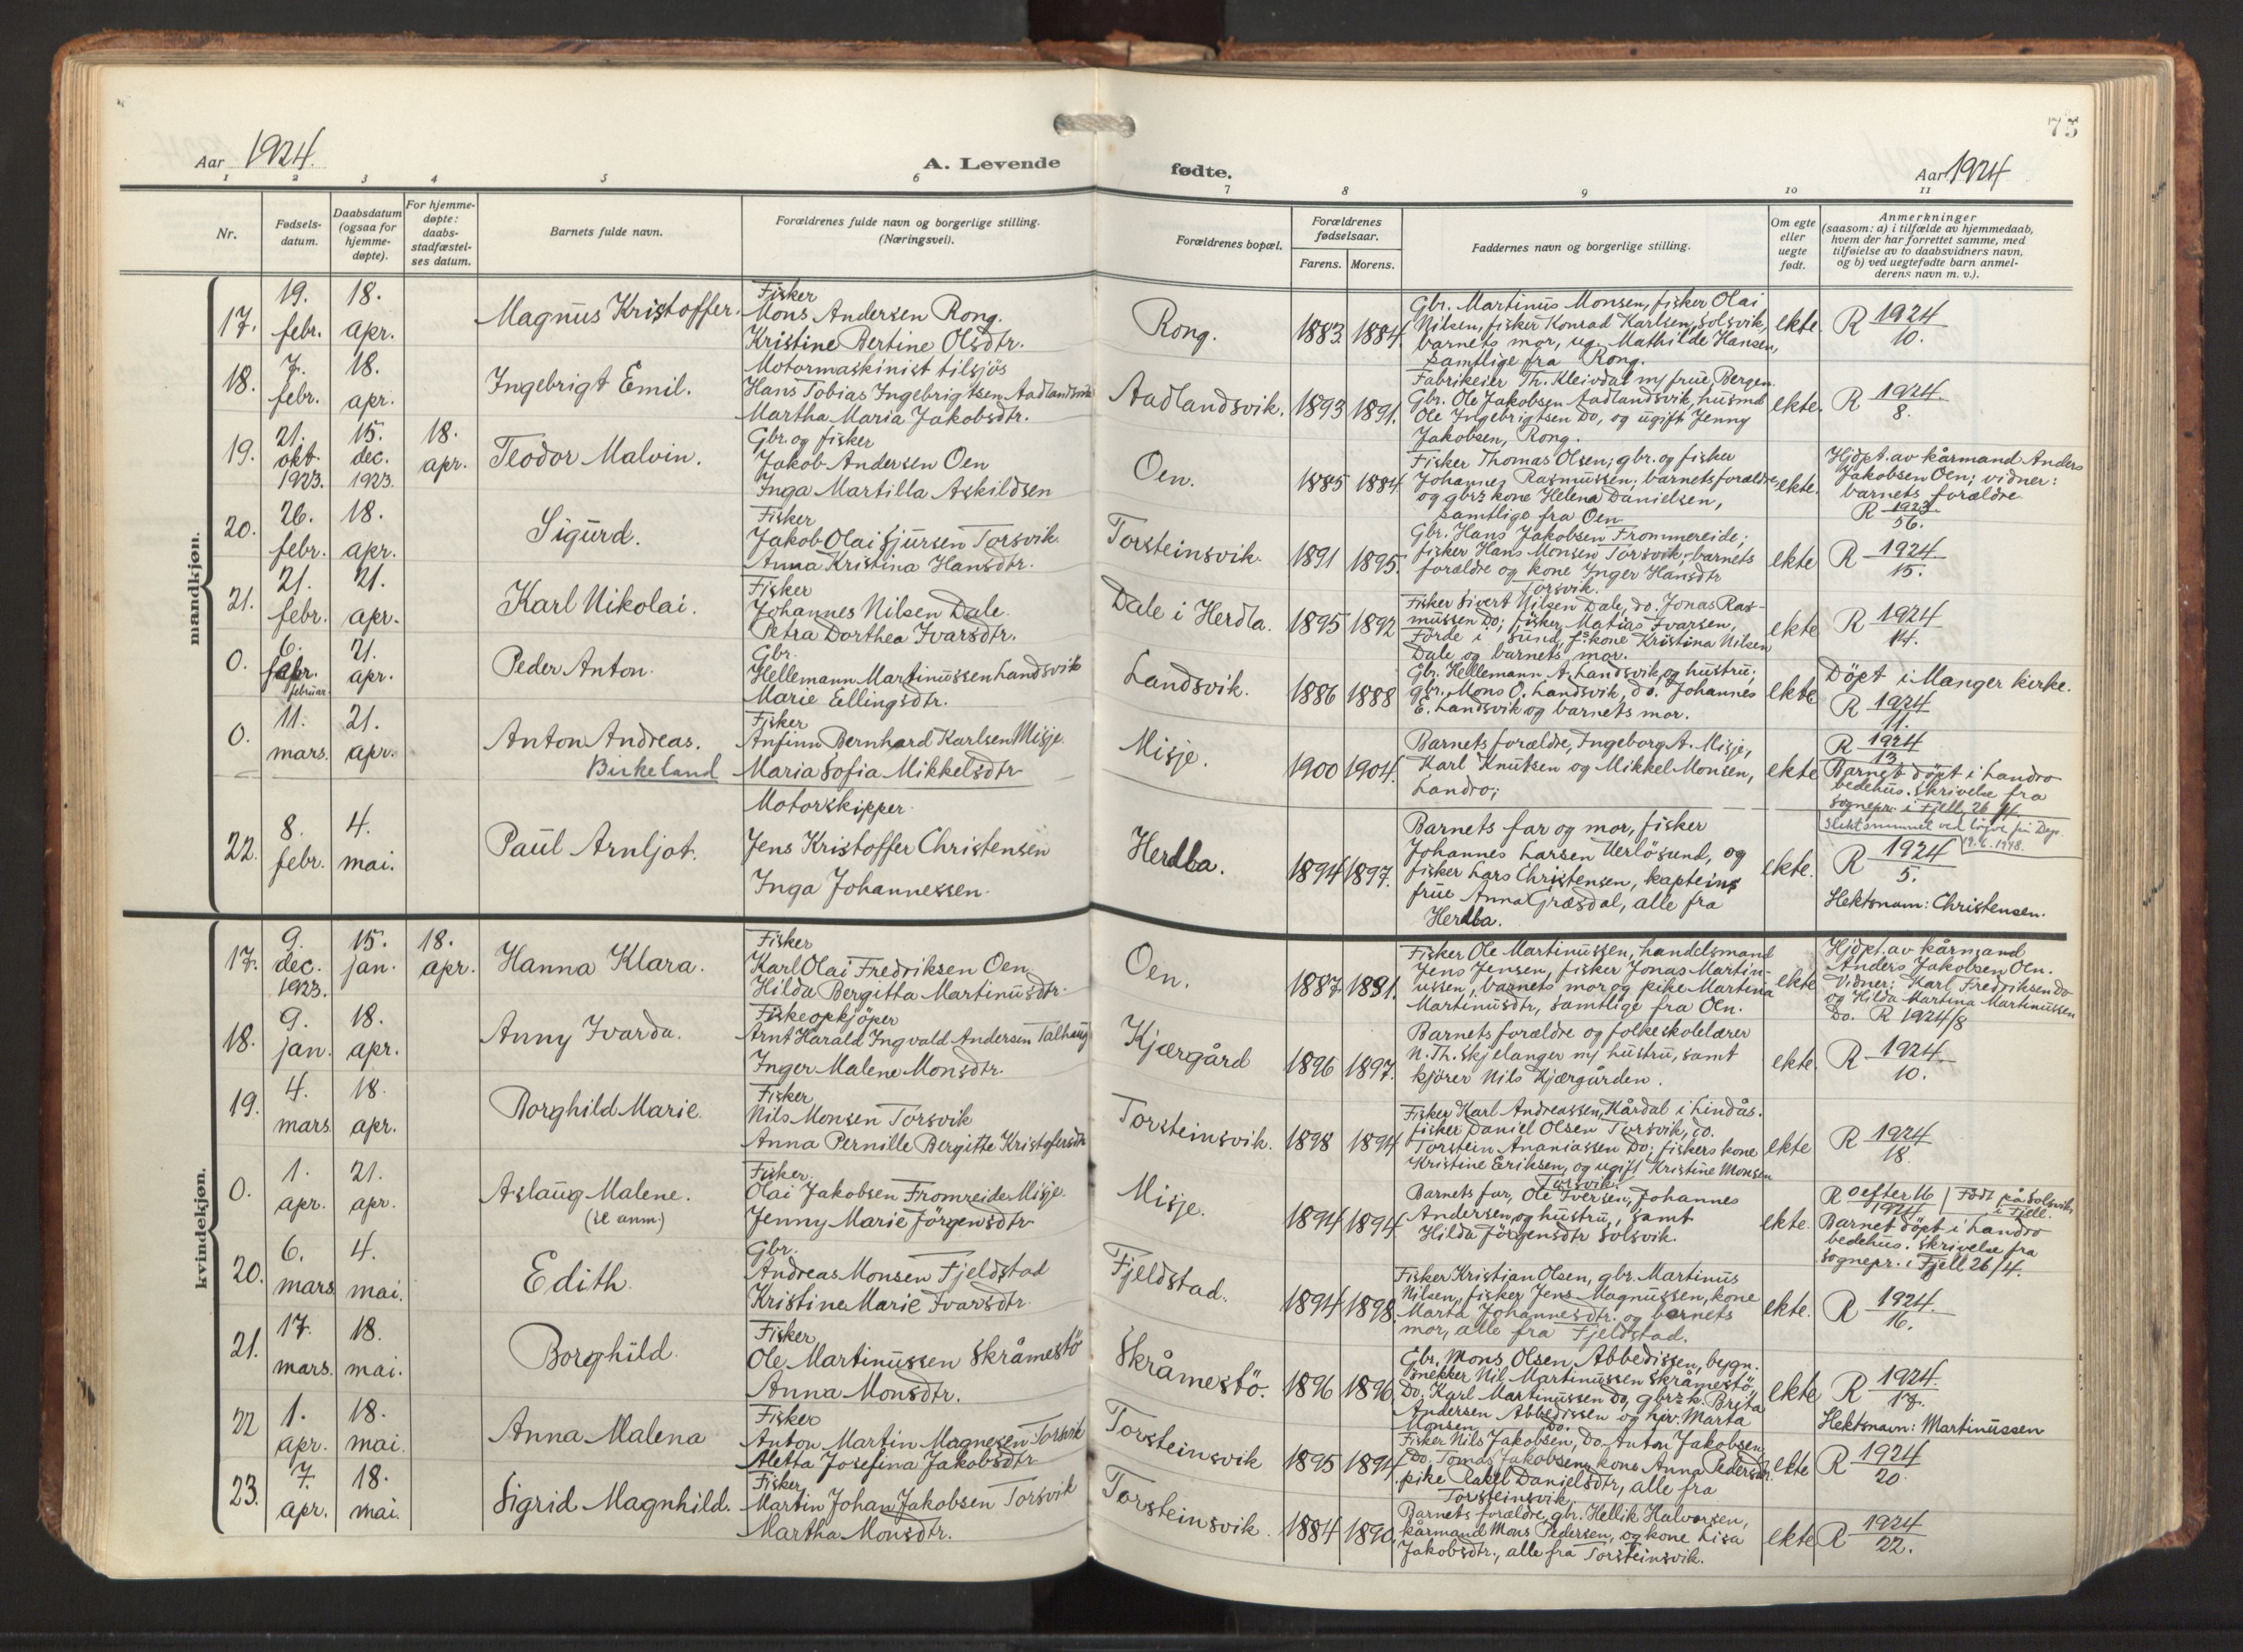 75
Aar 1924.
A. Levende
fødte.
Aar 1924
1 2 3 4 5 6 7 8 9 10 11
Nr.
Fødsels-
datum.
Daabsdatum
(ogsaa for
hjemme-
døpte).
For hjemme-
døpte:
daabs-
stadfæstel-
ses datum.
Barnets fulde navn.
Forældrenes fulde navn og borgerlige stilling.
(Næringsvei).
Forældrenes bopæl.
Forældrenes
fødselsaar.
Farens. Morens.
Faddernes navn og borgerlige stilling.
Om egte
eller
uegte
født.
Anmerkninger
(saasom: a) i tilfælde av hjemmedaab,
hvem der har forrettet samme, med
tilføielse av to daabsvidners navn,
og b) ved uegtefødte barn anmel-
derens navn m. v.).
mandkjøn.
17.
19.
febr.
18.
apr.
Magnus Kristoffer.
Fisker
Mons Andersen Rong.
Kristine Bertine Olsdtr.
Rong.
1883 1884.
Gbr. Martinus Monsen, fisker Olai
Nilsen, fisker Konrad Karlsen, Solsvik,
barnets mor, ug. Mathilde Hansen,
samtlige fra Rong.
ekte.
R 1924
10.
18.
7.
febr.
18.
apr.
Ingebrigt Emil.
Motormaskinist tilsjös
Hans Tobias Ingebrigtsen Aadlandsvik
Martha Maria Jakobsdtr.
Aadlandsvik.
1893 1891.
Fabrikeier Th. Kleivdal m/ frue, Bergen.
Gbr. Ole Jakobsen Aadlandsvik, husmd
Ole Ingebrigtsen Do, og ugift Jenny
Jakobsen, Rong.
ekte.
R 1924
8.
19.
21.
okt.
1923.
15.
dec.
1923.
18.
apr.
Teodor Malvin.
Gbr. og fisker
Jakob Andersen Oen
Inga Martilla Askildsen
Oen.
1885 1884
Fisker Thomas Olsen; gbr. og fisker
Johannes Rasmussen; barnets forældre,
og gbrs kone Helena Danielsen,
samtlige fra Oen
ekte.
Hjdpt. av kårmand Anders
Jakobsen Oen; vidner:
barnets forældre.
R 1923
56.
20.
26.
febr.
18.
apr.
Sigurd.
Fisker
Jakob Olai Sjursen Torsvik.
Anna Kristina Hansdtr.
Torsteinsvik.
1891 1895.
Gbr. Hans Jakobsen Frommereide;
fisker Hans Monsen Torsvik; barnets
forældre og kone Inger Hansdtr
Torsvik.
ekte
R 1924
15.
21.
21.
febr.
21.
apr.
Karl Nikolai.
Fisker
Johannes Nilsen Dale.
Petra Dorthea Ivarsdtr.
Dale i Herdla.
1895 1892
Fisker Sivert Nilsen Dale, do. Jonas Ras-
mussen Do; fisker Matias Ivarsen,
Förde i Sund, fs kone Kristina Nilsen
Dale og barnets mor.
ekte
R 1924
14.
0.
6.
februar
21.
apr.
Peder Anton.
Gbr.
Hellemann Martinussen Landsvik
Marie Ellingsdtr.
Landsvik.
1886 1888
Gbr. Hellemann A. Landsvik og hustru;
gbr. Mons O. Landsvik, do. Johannes
E. Landsvik og barnets mor.
ekte
Döpt i Manger kirke.
R 1924
11.
0.
11.
mars.
21.
apr.
Anton Andreas.
Birkeland
Fisker
Anfinn Bernhard Karlsen Misje.
Maria Sofia Mikkelsdtr
Misje.
1900 1904.
Barnets forældre, Ingeborg A. Misje,
Karl Knutsen og Mikkel Monsen,
Landro;
ekte
R 1924
13
Barnet döpt i Landro
bedehus. Skrivelse fra
sognepr. i Fjell 26/4.
22.
8.
febr.
4.
mai.
Paul Arnljot.
Motorskipper.
Jens Kristoffer Christensen
Inga Johannessen.
Herdla.
1894 1897.
Barnets far og mor, fisker
Johannes Larsen Uerlösund, og
fisker Lars Christensen, kapteins
frue Anna Græsdal, alle fra
Herdla.
ekte.
R 1924
5.
Slektsnam: Christensen.
kvindekjøn.
17.
9.
dec.
1923.
15.
jan.
18.
apr.
Hanna Klara.
Fisker
Karl Olai Fredriksen Oen
Hilda Bergitta Martinusdtr.
Oen.
1887 1891.
Fisker Ole Martinussen, handelsmand
Jens Jensen, fisker Jonas Martin-
ussen, barnets mor og pike Martina
Martinusdtr, samtlige fra Oen.
ekte
Hjdpt. av kårmand
Anders Jakobsen Oen.
Vidner: Karl Fredriksen do
og Hilda Martina Martinussen
Do. R 1924/8
18.
9.
jan.
18.
apr.
Anny Ivarda.
Fiskeopkjöper
Arnt Harald Ingvald Andersen Talhaug
Inger Malene Monsdtr.
Kjærgård
1896 1897.
Barnets forældre og folkeskolelærer
N. Th. Skjelanger m/ hustru, samt
kjörer Nils Kjærgården.
ekte.
R 1924
10.
19.
4.
mars
18.
apr.
Borghild Marie.
Fisker
Nils Monsen Torsvik
Anna Pernille Bergitte Kristofersdtr
Torsteinsvik.
1898 1894
Fisker Karl Andreassen, Kårdal i Lindås.
fisker Daniel Olsen Torsvik, do.
Torstein Ananiassen Do; fiskers kone
Kristine Eriksen, og ugift Kristine Monsen
Torsvik.
ekte
R 1924
18.
0.
1.
apr.
21.
apr.
Aslaug Malene.
(se anm)
Fisker
Olai Jakobsen Fromreide Misje.
Jenny Marie Jörgensdtr
Misje.
1894 1894
Barnets far, Ole Iversen, Johannes
Andersen og hustru, samt
Hilda Jörgensdtr Solsvik.
ekte.
R 0 efter 16
1924
Födt på Solsvik
i Fjell.
Barnet döpt i Landro
bedehus. Skrivelse fra
sognepr. i Fjell 26/4.
20.
6.
mars
4.
mai.
Edith.
Gbr.
Andreas Monsen Fjeldstad
Kristina Marie Ivarsdtr.
Fjeldstad.
1894 1898.
Fisker Kristian Olsen, gbr. Martinus
Nilsen, fisker Jens Magnussen, kone
Marta Johannesdtr. og barnets
mor, alle fra Fjeldstad.
ekte.
R 1924.
16.
21.
17.
mars.
18.
mai.
Borghild.
Fisker
Ole Martinussen Skråmestö
Anna Monsdtr.
Skråmestö.
1896 1896
Gbr. Mons Olsen Abbedissen, bygn.
snekker Nil Martinussen Skråmestö
Do. Karl Martinussen Do, gbrs k. Brita
Andersen Abbedissen og hjv. Marta
Monsen Do.
ekte
R 1924.
17.
Slektsnavn: Martinussen
22
1.
apr.
18.
mai.
Anna Malena
Fisker
Anton Martin Magnesen Torsvik
Aletta Josefina Jakobsdtr
Torsteinsvik
1895 1894.
Fisker Nils Jakobsen, Do. Anton Jakobsen,
Do. Tomas Jakobsen, kone Anna Pedersdtr.
pike Rakel Danielsdtr, alle fra
Torsteinsvik.
ekte
R 1924
20.
23.
7.
apr.
18.
mai.
Sigrid Magnhild.
Fisker
Martin Johan Jakobsen Torsvik
Martha Monsdtr.
Torsteinsvik.
1884 1890.
Barnets forældre, gbr. Hellik Halvorsen,
kårmand Mons Pedersen, og kone Lisa
Jakobsdtr., alle fra Torsteinsvik.
ekte
R 1924
22.